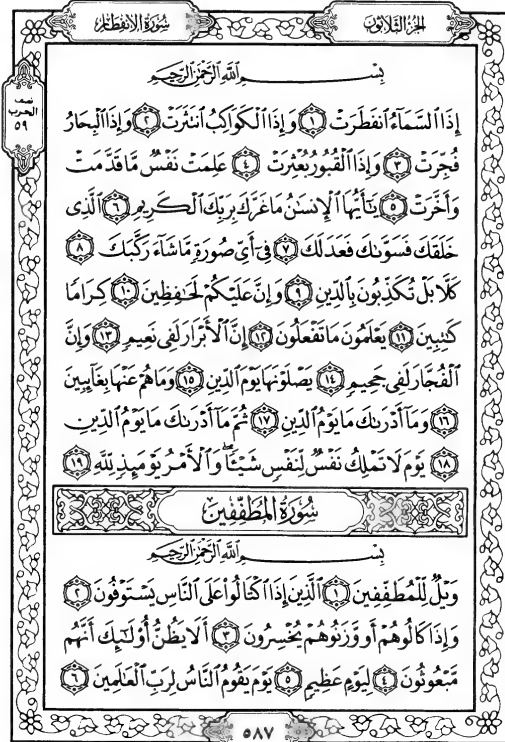 الجزء الثلاثون
سورة الانفطار
نصف
الحزب
٥٩
بِسْمِ اللَّهِ الرَّحْمَٰنِ الرَّحِيمِ
إِذَا السَّمَاءُ انفَطَرَتْ ١ وَإِذَا الْكَوَاكِبُ انتَثَرَتْ ٢ وَإِذَا الْبِحَارُ
فُجِّرَتْ ٣ وَإِذَا الْقُبُورُ بُعْثِرَتْ ٤ عَلِمَتْ نَفْسٌ مَّا قَدَّمَتْ
وَأَخَّرَتْ ٥ يَٰأَيُّهَا الْإِنسَٰنُ مَا غَرَّكَ بِرَبِّكَ الْكَرِيمِ ٦ الَّذِي
خَلَقَكَ فَسَوَّىٰكَ فَعَدَلَكَ ٧ فِي أَيِّ صُورَةٍ مَّا شَاءَ رَكَّبَكَ ٨
كَلَّا بَلْ تُكَذِّبُونَ بِالدِّينِ ٩ وَإِنَّ عَلَيْكُمْ لَحَٰفِظِينَ ١٠ كِرَامًا
كَٰتِبِينَ ١١ يَعْلَمُونَ مَا تَفْعَلُونَ ١٢ إِنَّ الْأَبْرَارَ لَفِي نَعِيمٍ ١٣ وَإِنَّ
الْفُجَّارَ لَفِي جَحِيمٍ ١٤ يَصْلَوْنَهَا يَوْمَ الدِّينِ ١٥ وَمَا هُمْ عَنْهَا بِغَائِبِينَ
١٦ وَمَا أَدْرَىٰكَ مَا يَوْمُ الدِّينِ ١٧ ثُمَّ مَا أَدْرَىٰكَ مَا يَوْمُ الدِّينِ
١٨ يَوْمَ لَا تَمْلِكُ نَفْسٌ لِّنَفْسٍ شَيْئًا ۖ وَالْأَمْرُ يَوْمَئِذٍ لِّلَّهِ ١٩
سُورَةُ الْمُطَفِّفِينَ
بِسْمِ اللَّهِ الرَّحْمَٰنِ الرَّحِيمِ
وَيْلٌ لِّلْمُطَفِّفِينَ ١ الَّذِينَ إِذَا اكْتَالُوا عَلَى النَّاسِ يَسْتَوْفُونَ ٢
وَإِذَا كَالُوهُمْ أَو وَّزَنُوهُمْ يُخْسِرُونَ ٣ أَلَا يَظُنُّ أُولَٰئِكَ أَنَّهُم
مَّبْعُوثُونَ ٤ لِيَوْمٍ عَظِيمٍ ٥ يَوْمَ يَقُومُ النَّاسُ لِرَبِّ الْعَٰلَمِينَ ٦
٥٨٧